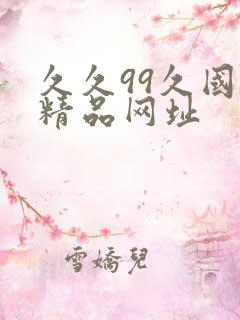 久久99久国
精品网址
雪嬌兒